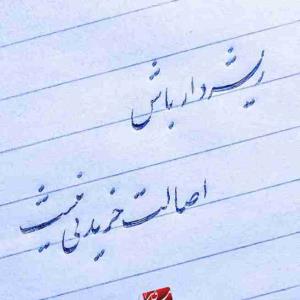 ریشه‌دار باش
اصالت خریدنی نیست